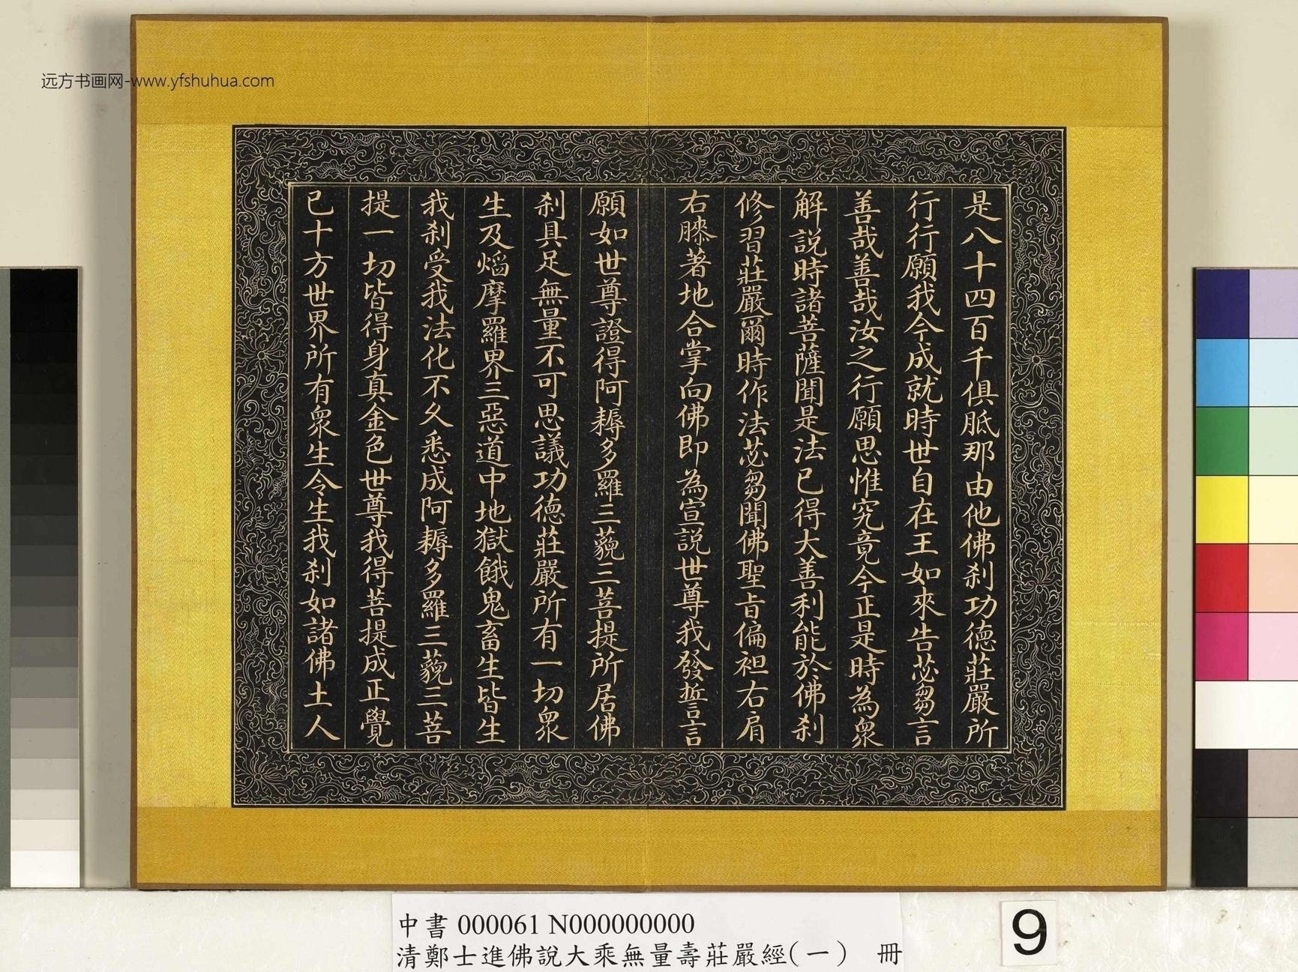 远方书画网-www.yfshuhua.com
是八十四百千俱胝那由他佛刹功德莊嚴所
行行願我今成就時世自在王如來告苾芻言
善哉善哉汝之行願思惟究竟今正是時為衆
解說時諸菩薩聞是法已得大善利能於佛刹
修習莊嚴爾時作法苾芻聞佛聖旨偏袒右肩
右膝著地合掌向佛即為宣說世尊我發誓言
願如世尊證得阿耨多羅三藐三菩提所居佛
刹具足無量不可思議功德莊嚴所有一切衆
生及焰摩羅界三惡道中地獄餓鬼畜生皆生
我刹受我法化不久悉成阿耨多羅三藐三菩
提一切皆得身真金色世尊我得菩提成正覺
已十方世界所有衆生令生我刹如諸佛土人
中書 000061 N000000000
清鄭士進佛說大乘無量壽莊嚴經(一) 冊
9